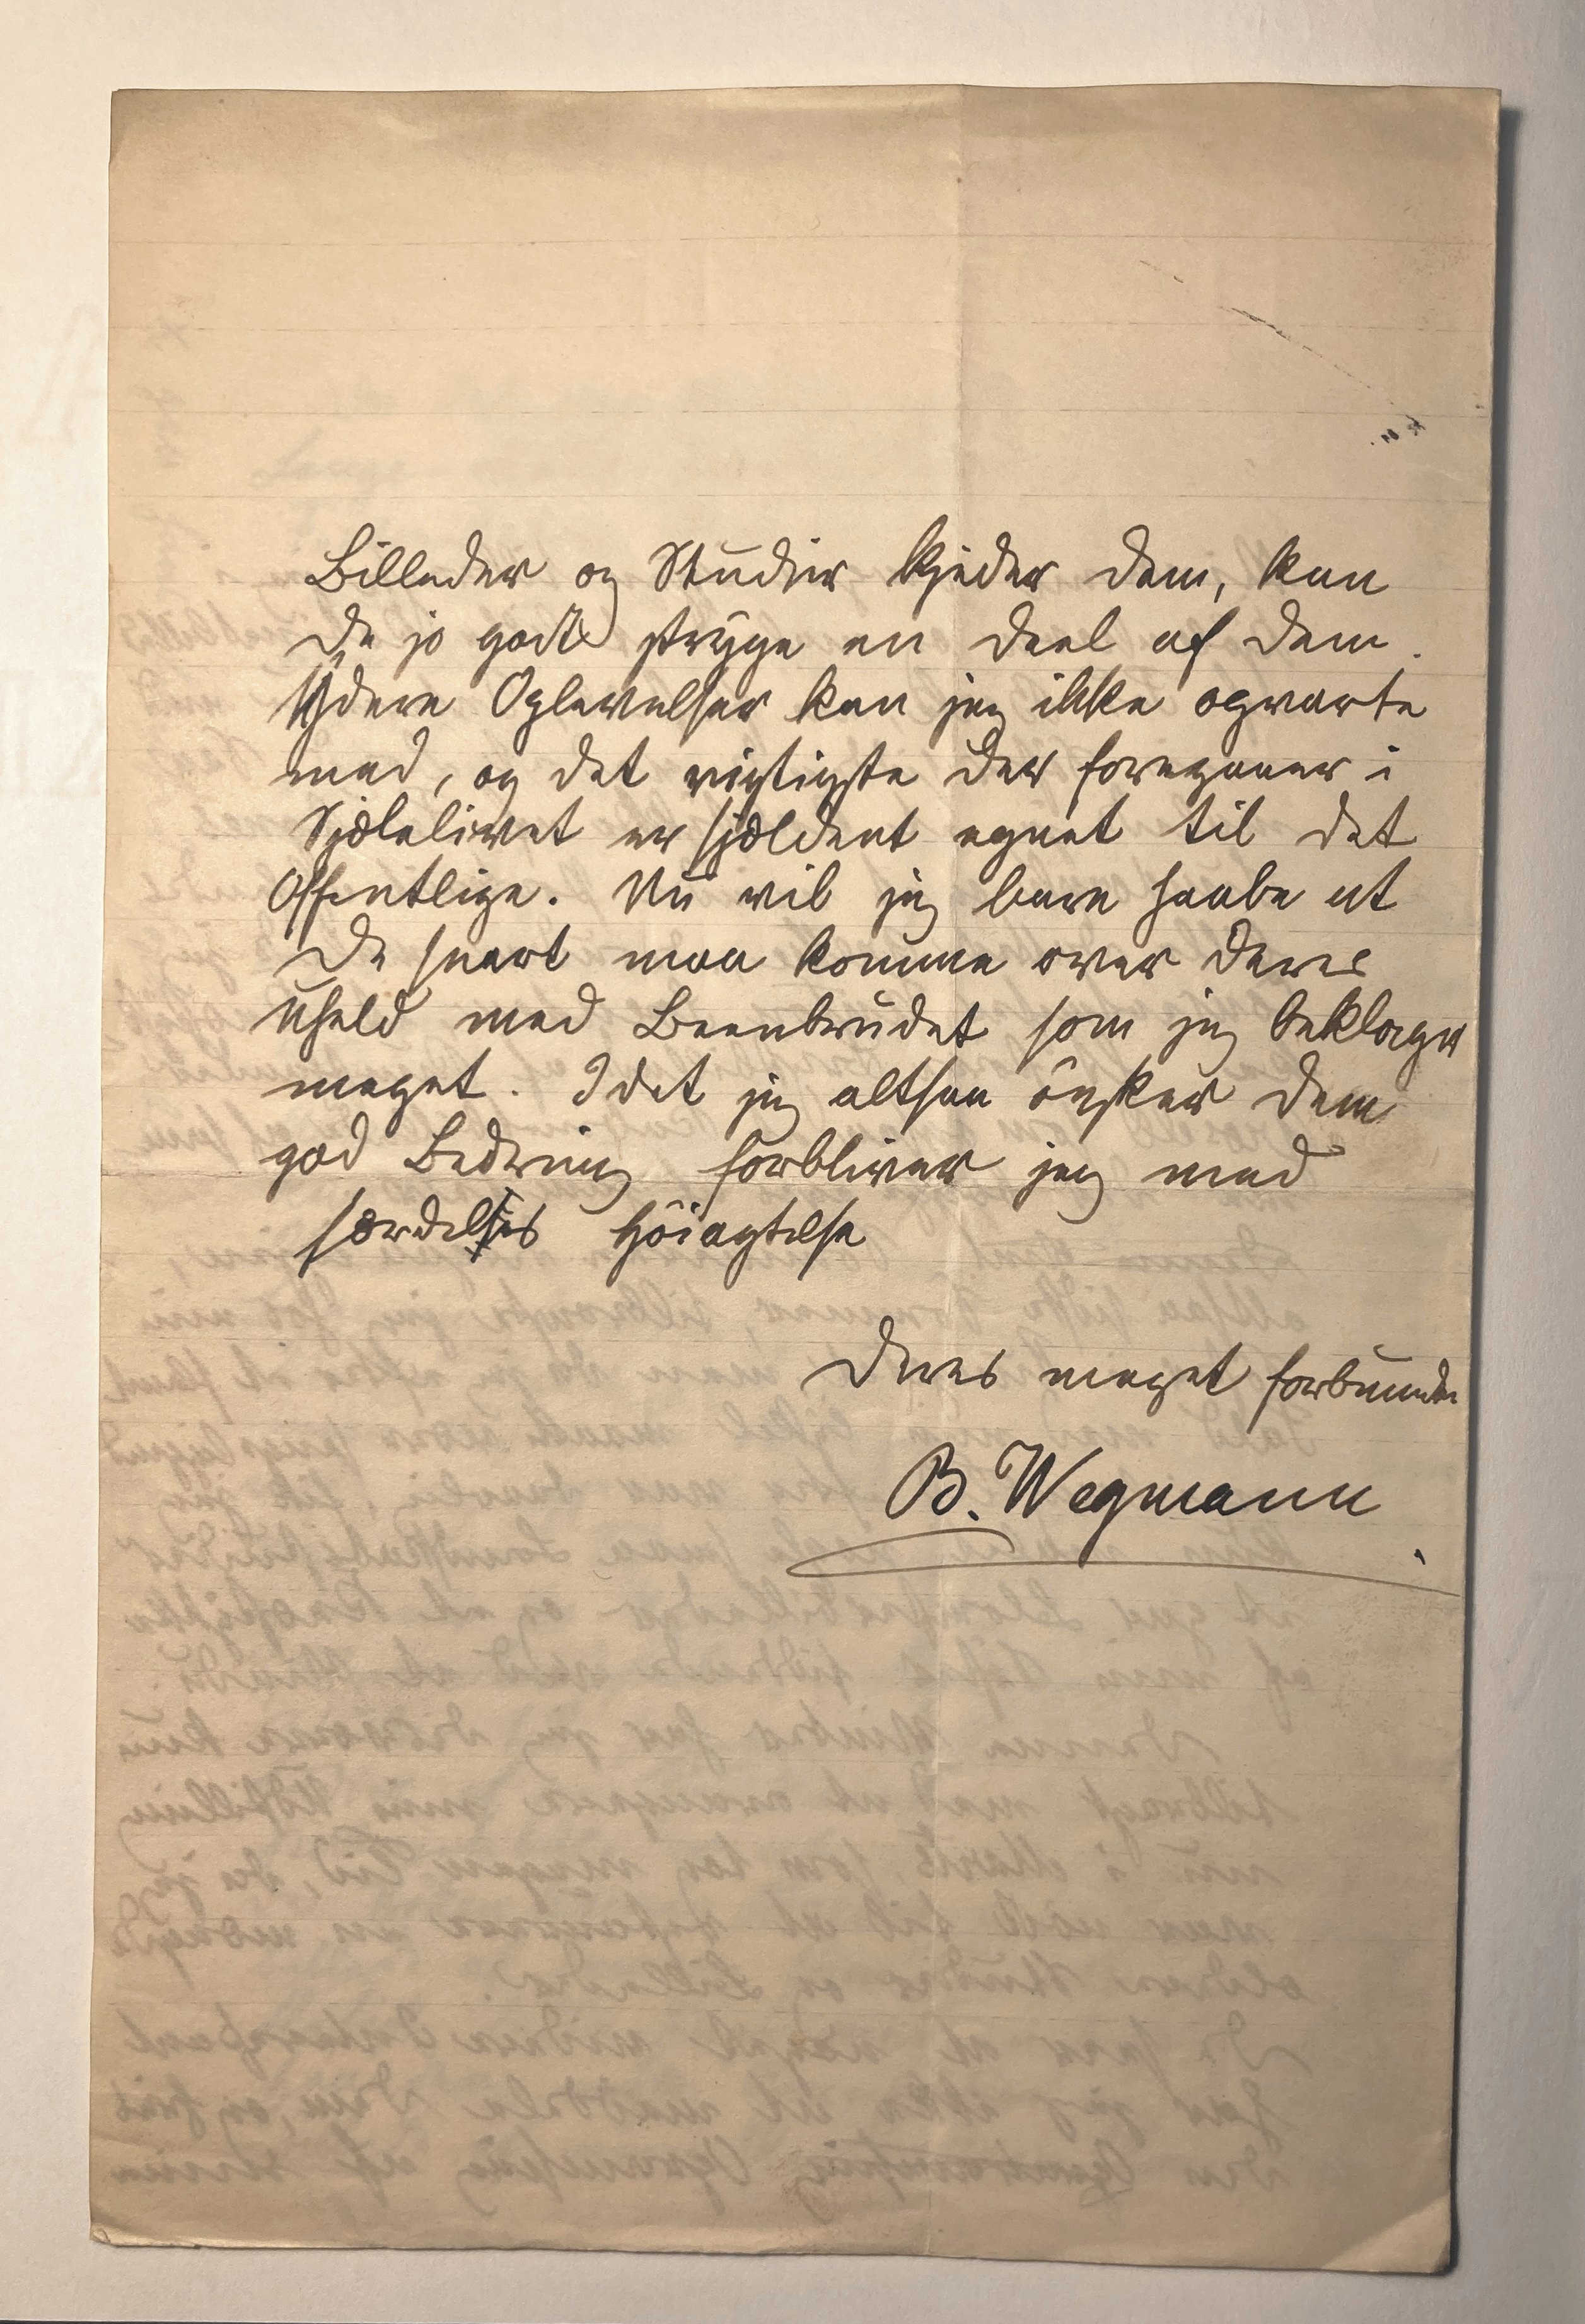 Billeder og Studier kjeder Dem, kan
De jo godt stryge en Deel af dem.
Ydere Oplevelser kan jeg ikke opvarte
med, og det vigtigste der foregaaer i
Sjælelivet er sjældent egnet til det
Offentlige. Nu vil jeg bare haabe at
De snart maa komme over Deres
Uheld med Beenbrudet som jeg beklager
meget. Idet jeg altsaa önsker Dem
god Bedring forbliver jeg med
særdeles Höiagtelse
Deres meget forbundne
B. Wegmann